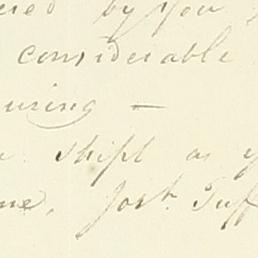 ered by you
considerable
uring —
shipt as y
me, for